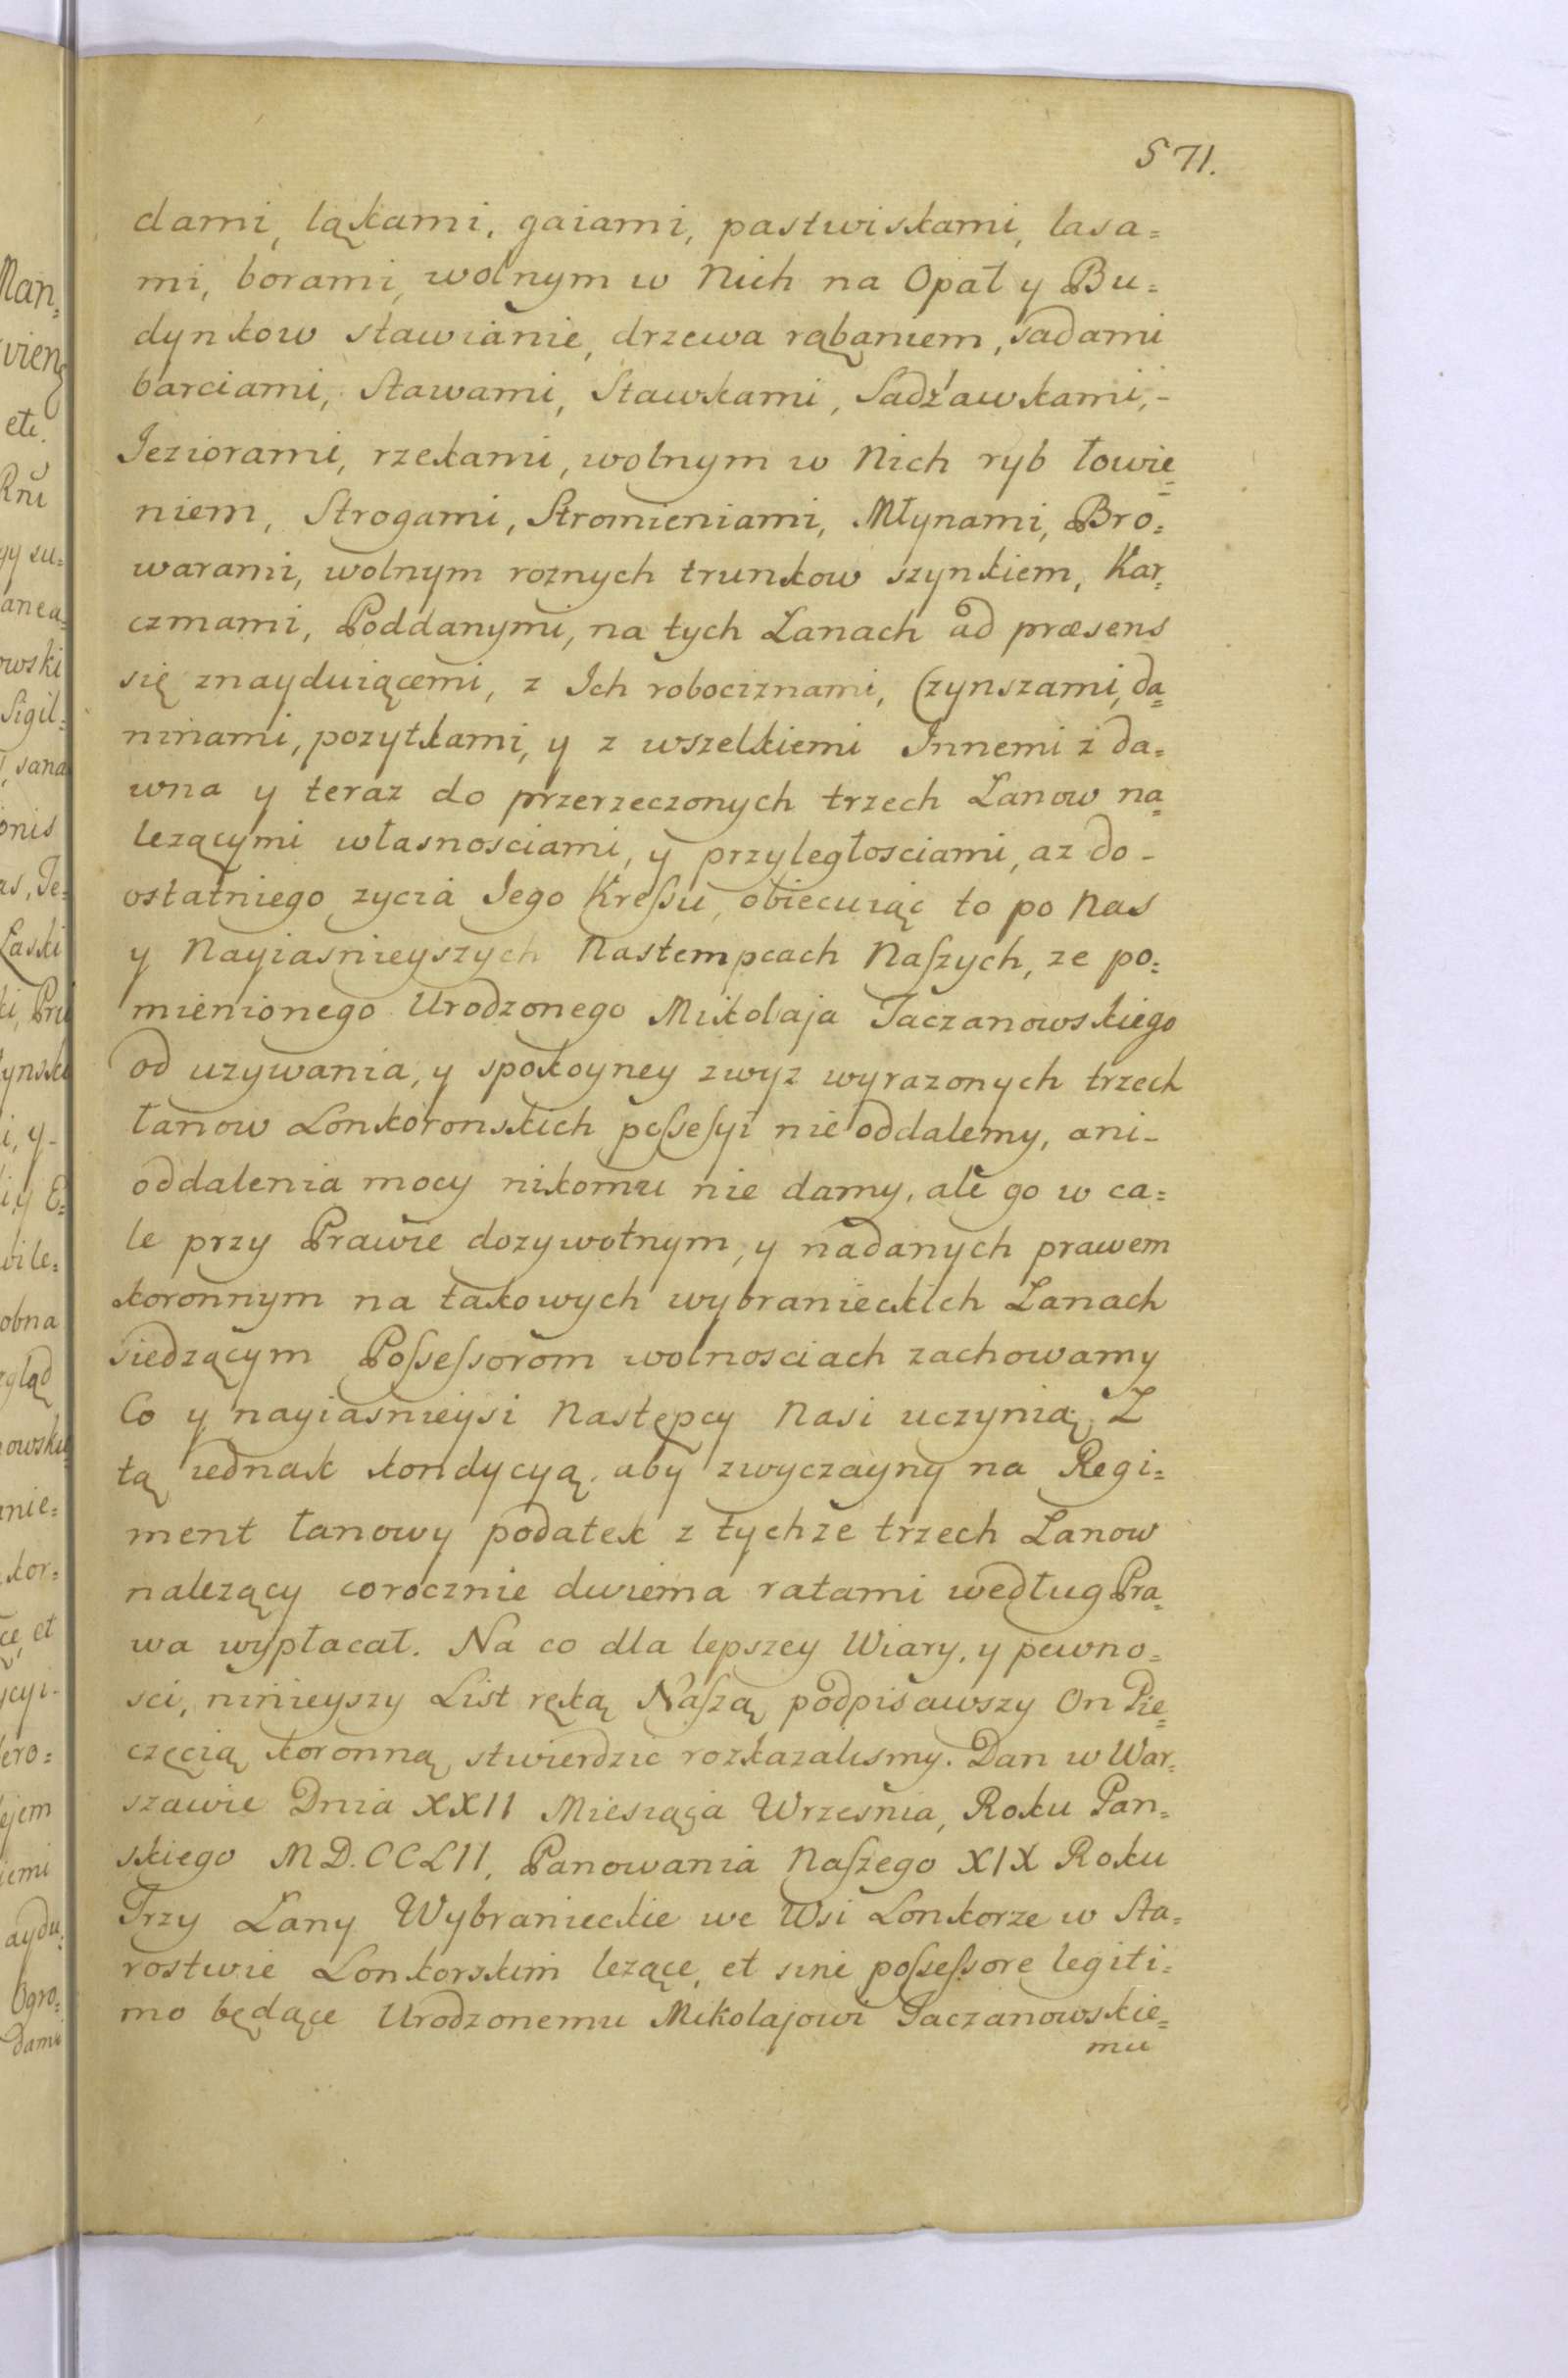 571.
dami, ląkami, gaiami, pastwiskami, lasa=
mi, borami, wolnym w Nich na Opał y Bu=
dynkow stawianie, drzewa rąbaniem, sadami
barciami, Stawami, Stawkami, Sadźawkami,-
Jeziorami, rzekami, wolnym w Nich ryb łowie=
niem, Strogami, Stromieniami, Młynami, Bro=
warami, wolnym roznych trunkow szynkiem, Kar=
czmami, Poddanymi, na tych Lanach ad præsens
się znayduiącemi, z Ich robociznami, Czynszami, da=
ninami, pozytkami, y z wszelkiemi Innemi z da=
wna y teraz do przerzeczonych trzech Lanow na=
lezącymi własnosciami, y przyległosciami, az do-
ostatniego zycia Jego Kreſsu, obiecuiąc to po Nas
y Nayiasnieyszych Nastempcach Naſzych, ze po=
mienionego Urodzonego Mikolaja Taczanowskiego
od uzywania, y spokoyney zwyz wyrazonych trzech
łanow Lonkoronskich poſseſyi nie oddalemy, ani-
oddalenia mocy nikomu nie damy, ale go w ca=
le przy Prawie dozywotnym, y nadanych prawem
koronnym na takowych wybranieckich Lanach
siedzącym Poſseſsorom wolnosciach zachowamy
Co y nayiasnieysi Następcy Nasi uczynią. Z
tą iednak kondycyą, aby zwyczayny na Regi=
ment łanowy podatek z tychze trzech Lanow
nalezący corocznie dwiema ratami według Pra=
wa wypłacał. Na co dla lepszey Wiary, y pewno=
sci, ninieyszy List ręką Naſzą podpisawszy On Pie=
częcią koronną stwierdzic rozkazalismy. Dan w War=
szawie Dnia XXII Miesiąca Wrzesnia, Roku Pan=
skiego MD.CCLII, Panowania Naſzego XIX Roku
Trzy Lany Wybranieckie we Wsi Lonkorze w Sta=
rostwie Lonkorskim lezące, et sine poſseſsore legiti=
mo będące Urodzonemu Mikolajowi Taczanowskie=
mu